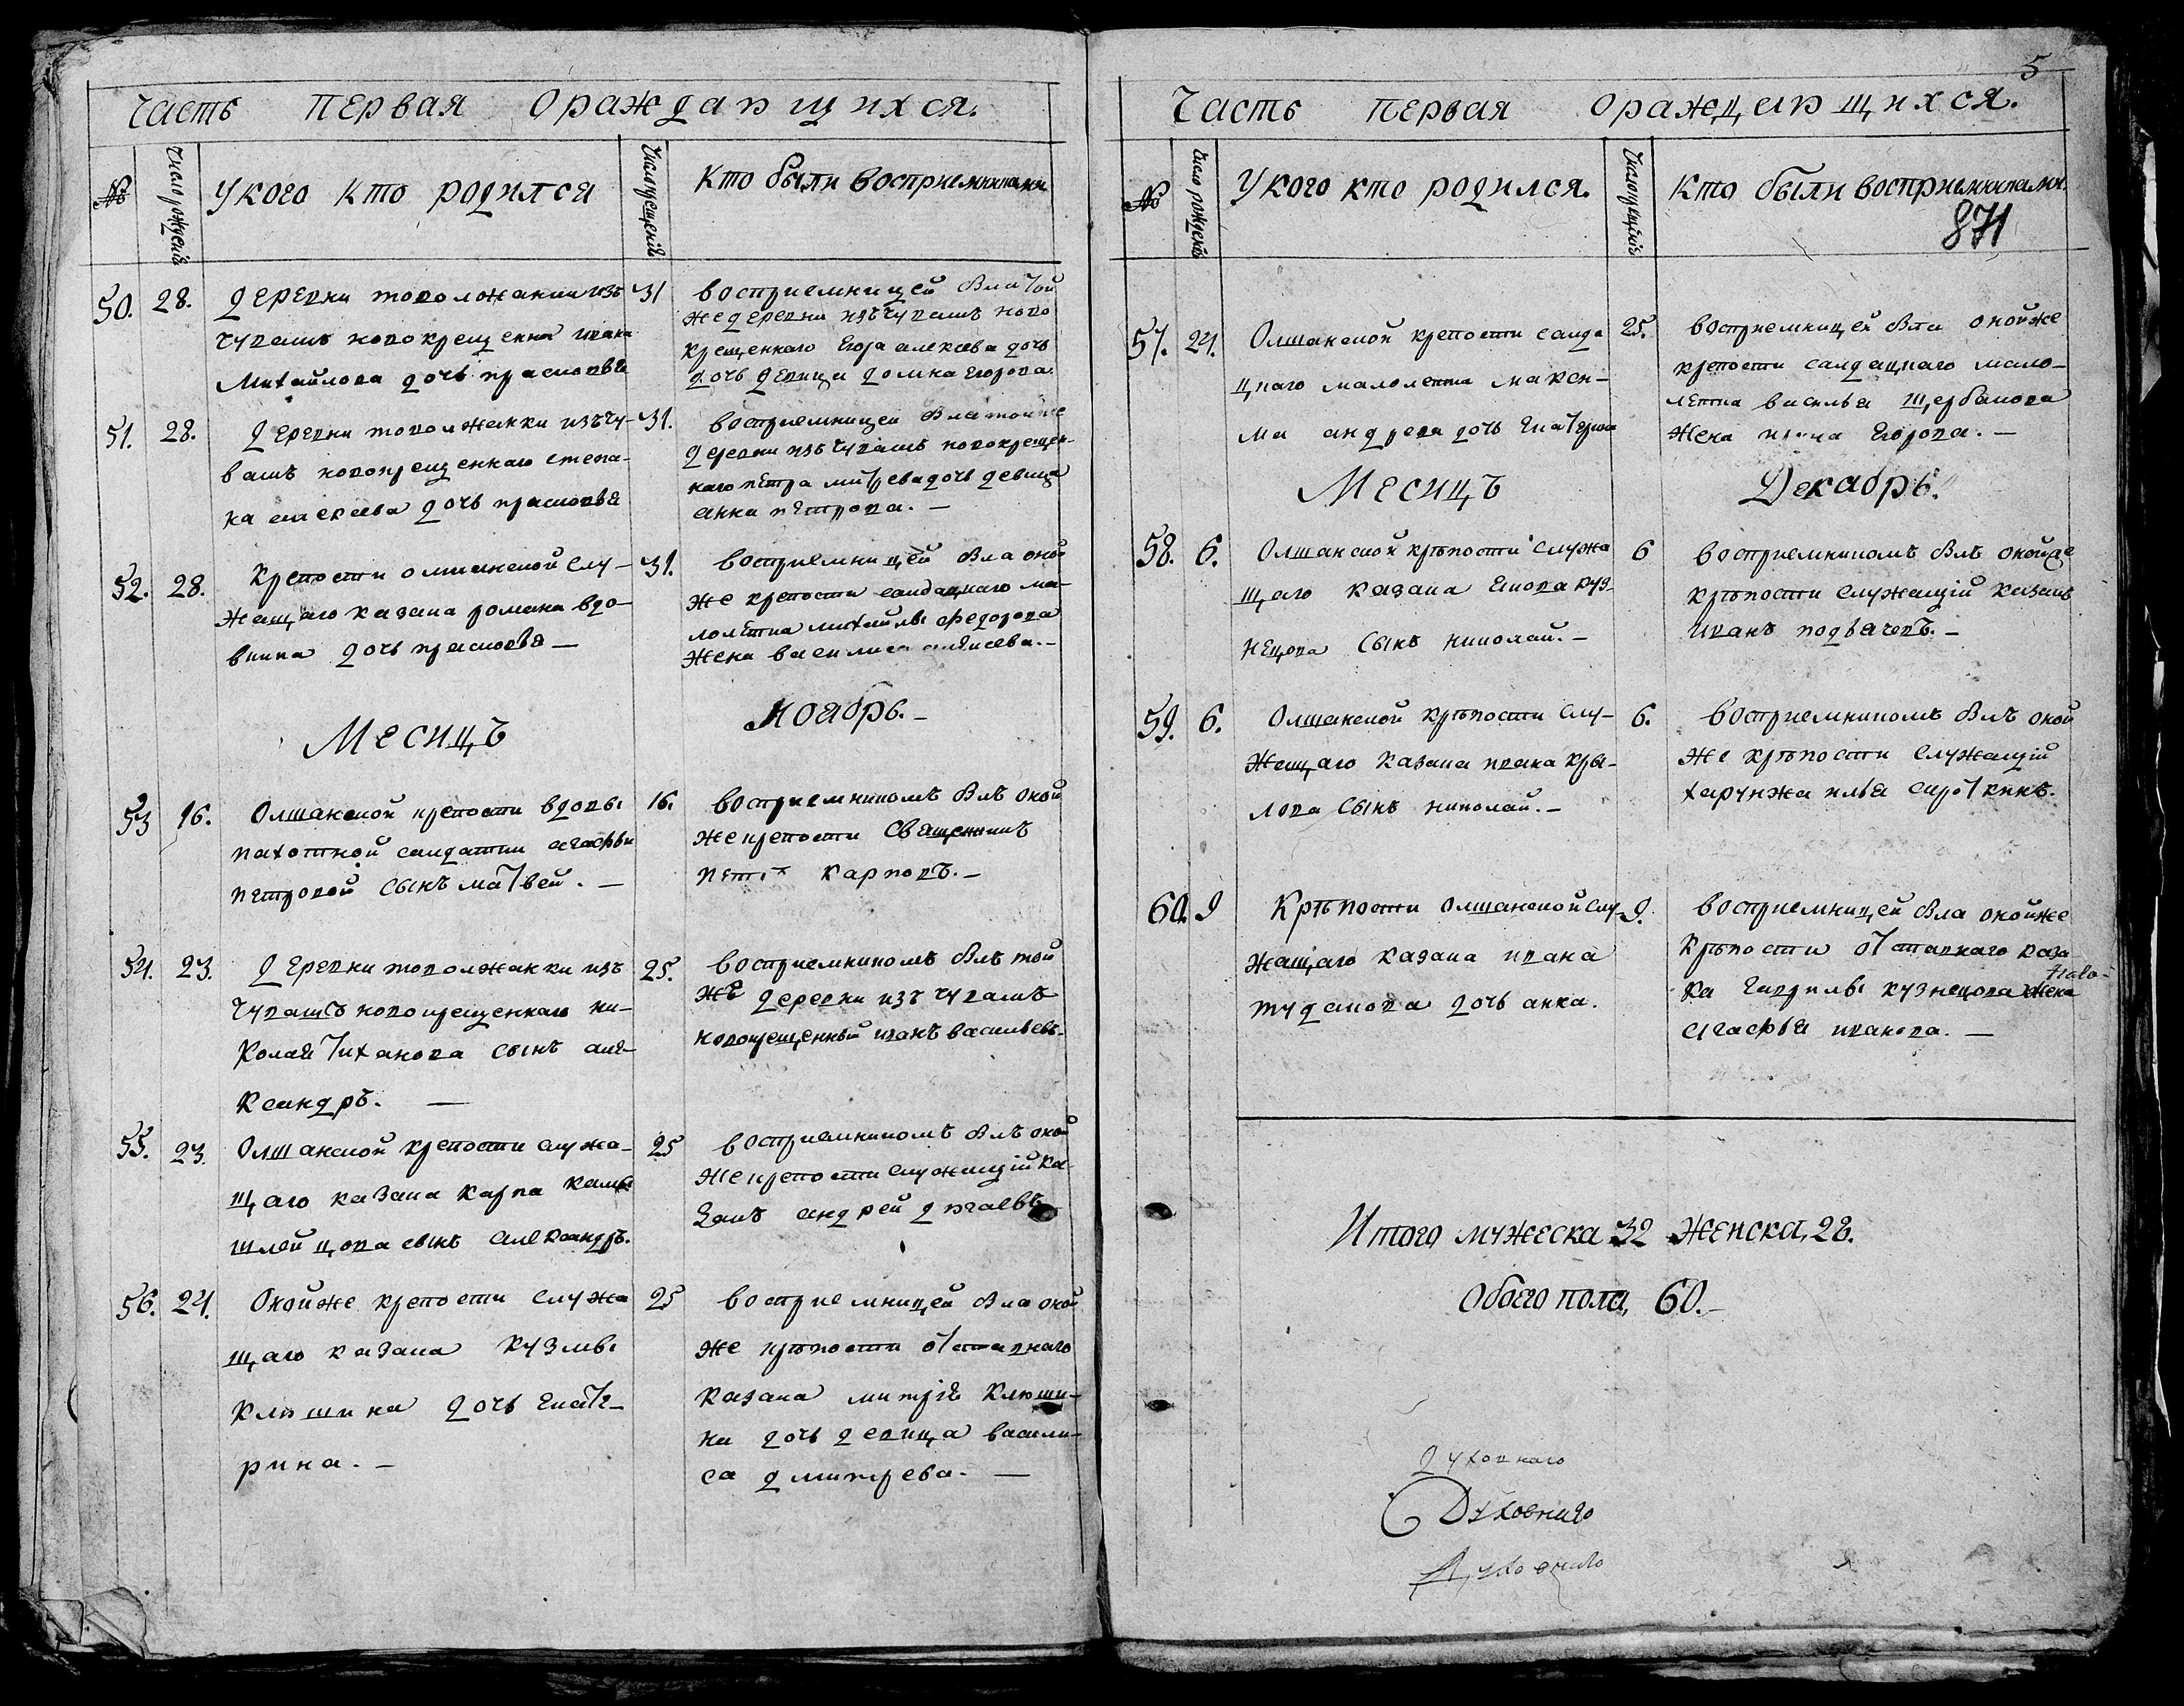 Часть первая ораждающихся.
№
Число рожденiя
У кого кто родился
Число крещенiй
Кто были восприемниками
50. 28. деревни товолжанки изъ
чувашъ новокрещенна ивана
Михайлова дочь прасковья
31 восприемницей была той
же деревни изъ чувашъ ново
крещеннаго Егора алексева дочь
дочь девица домна Егорова
51. 28. Деревни товолжанки изъ чу-
вашъ новокрещеннаго степа-
на алексева дочь прасковья
31. восприемницей была той же
деревни изъ чувашъ новокрещен-
наго петра митрева дочь девица
анна петрова. —
52. 28. Крепости олшанской слу-
жащаго казака романа вдо-
вкина дочь прасковья —
31. восприемницей была оной
же крепости салдацкаго ма-
лолетка михайлы федорова
жена василиса алексева. —
Месицъ
Ноабрь. —
53 16. Олшанской крепости вдовы
пахотной салдатки агафьи
петровой сынъ матвей. —
16. восприемникомъ былъ оной
же крепости священникъ
карповъ. —
54. 23. Деревни товолжанки изъ
чувашъ новокрещеннаго ни-
колая тиханова сынъ але-
ксандръ. —
25. восприемникомъ былъ той
же деревни изъ чувашъ
новокрещенный иванъ васильевъ.
55. 23. Олшанской крепости служа-
щаго казака карпа камы
шлейцова сынъ александръ.
25 восприемникомъ былъ оной
же крепости служащiй ка-
закъ андрей
56. 24. Оной же крепости служа
щаго казака кузмы
клюшина дочь екате-
рина. —
25 восприемницей была оной
же крѣпости отставнаго
казака митрiя клюши-
на дочь девица васили-
са дмитрева. —
5
Часть первая ораждающихся.
№
Число рожденiй
У кого кто родился.
Число крещенiй
Кто были восприемниками
871
57. 24. Олшанской крепости салда
цкаго малолетка макси-
ма андрева дочь екатерина
25. восприемницей была оной же
крепости салдацкаго мало-
летка василья щербакова
жена Егорова. —
Месицъ
Декабрь.
58. 6. Олшанской крѣпости служа
щаго казака якова куз-
нецова сынъ николай. —
6 восприемникомъ былъ оной же
крѣпости служащiй казакъ
иванъ подьячевъ. —
59. 6. Олшанской крѣпости слу-
жащаго казака ивана кры-
лова сынъ николай. —
6. восприемникомъ былъ оной
же крѣпости служащiй
харунжа илья сироткинъ.
60. 9 Крѣпости олшанской слу-
жащаго казака ивана
тудакова дочь анна.
9. восприемницей была оной же
крѣпости отставнаго каза
ка гаврилы кузнецова жена
агафья иванова. —
Итого мужеска 32 женска, 28.
Обоего пола, 60. —
духовнаго
Духовнаго
Духовнаго